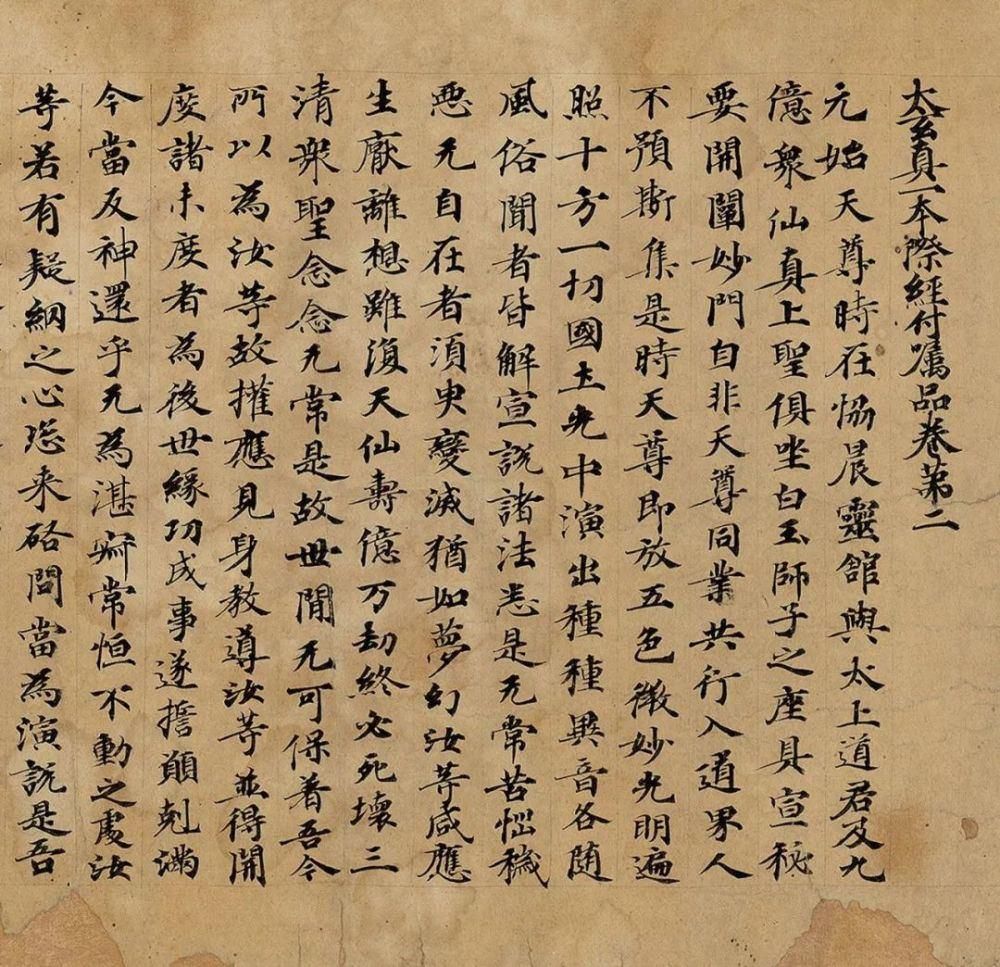 太玄真一本際經付囑品卷第二
元始天尊時在協晨靈館與太上道君及九
億衆仙真上聖俱坐白玉師子之座具宣秘
要開闡妙門自非天尊同業共行入道界人
不預斯集是時天尊即放五色微妙光明遍
照十方一切國土光中演出種種異音各随
風俗聞者皆解宣說諸法悉是无常苦惱穢
惡无自在者須臾變滅猶如夢幻汝等咸應
生厭離想雖復天仙壽億万劫終必死壞三
清衆聖念念无常是故世閒无可保著吾今
所以為汝等故權應見身教導汝等並得開
度諸未度者為後世緣功成事遂擔願剋滿
今當反神還乎无為湛寂常恒不動之處汝
等若有疑網之心恣来諮問當為演說是吾